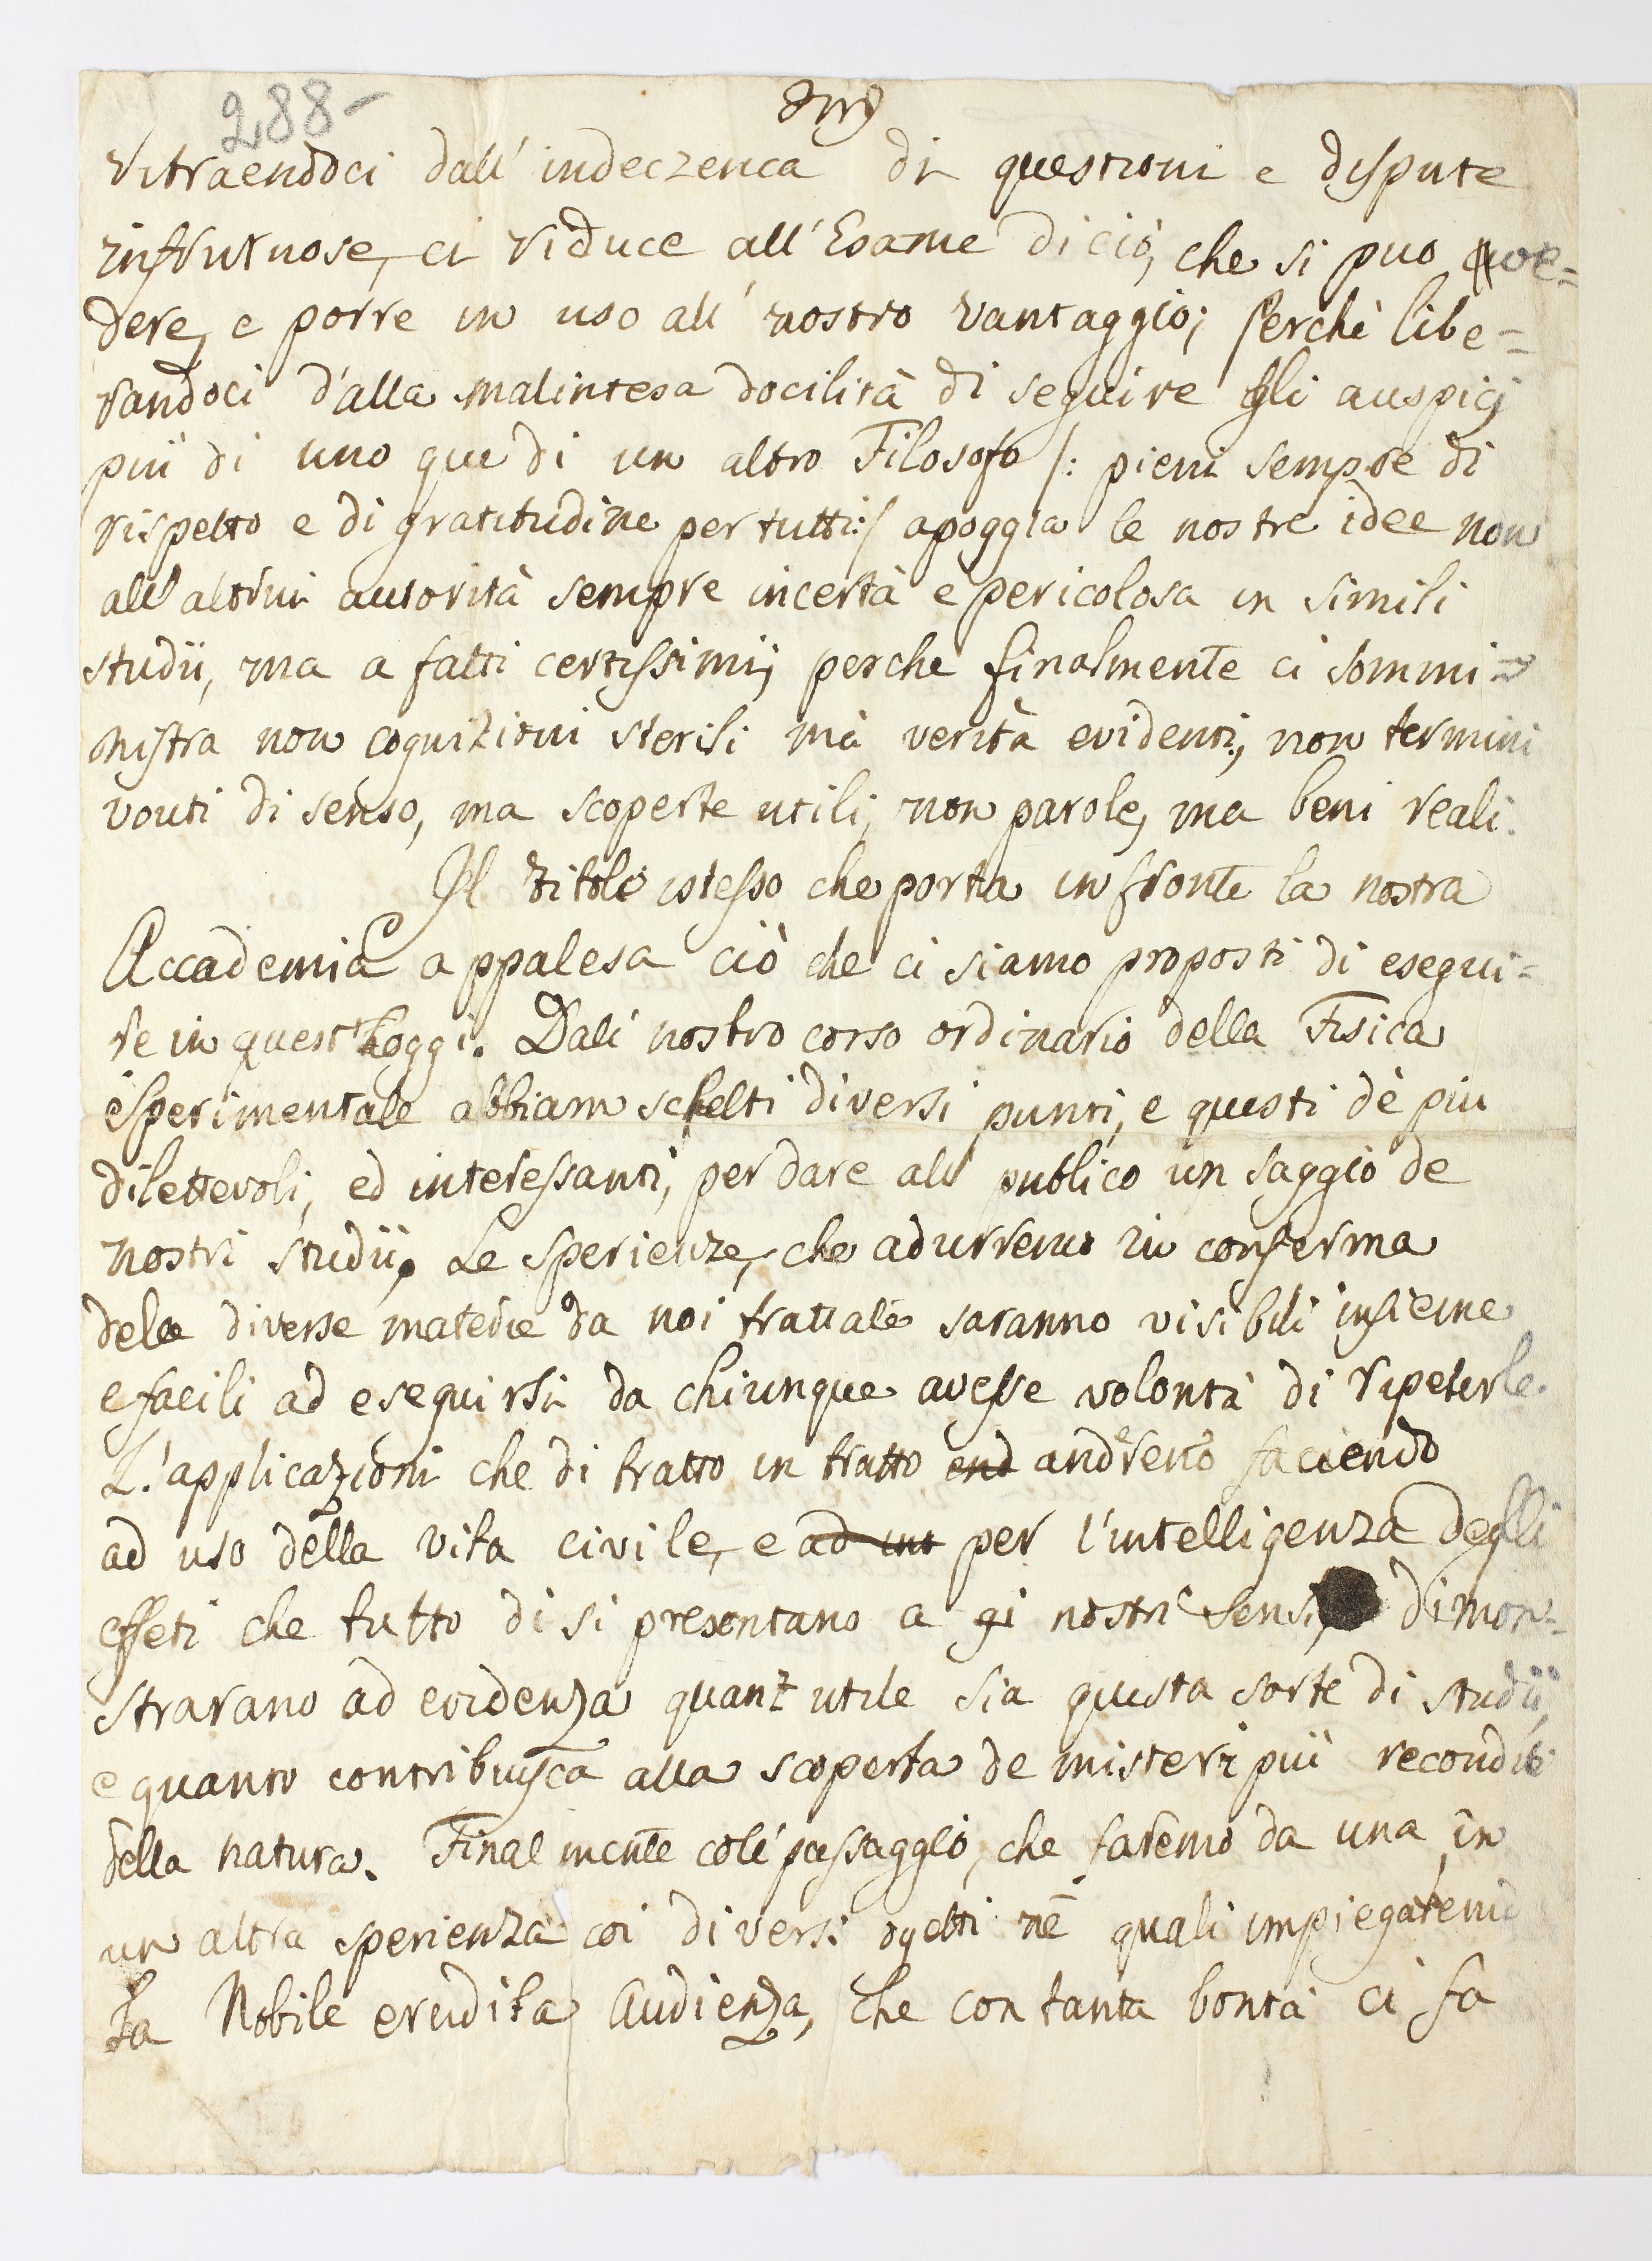 288-
ritraendoci dall' indeczenca di questioni e dispute
infrutuose, ei riduce all' Esame di ciò, che si puo ve=
dere, e porre in uso all' nostro vantaggio; perchè libe=
randoci d'alla malintesa docilità di seguire gli auspicj
più di uno que di un altro Filosofo /: pieni sempre di
rispetto e di gratitudine per tutti:/ apoggia le nostre idee non
all' altrui autorità sempre incertà e pericolosa in simili
studii, ma a fatti certissimi; perche finalmente ci sommi=
nistra non cognizioni sterili mà verità evidenti, non termini
vouti di senso, ma scoperte utili, non parole, ma beni reali.
Il titolo istesso che porta in fronte la nostra
Accademia appalesa ciò che ci siamo proposti di esegui=
re in quest' hoggi. Dall' nostro corso ordinario della Fisica
esperimentale abbiam schelti diversi punti, e questi dè piu
dilettevoli, ed interessanti, per dare all' publico un saggio de
nostri studii. Le sperienze, che adurremo in conferma
dele diverse materie da noi trattate saranno visibili insieme
e facili ad eseguirsi da chiunque avesse volontà di ripeterle.
L'applicazioni che di tratto in tratto end andreno faciendo
ad uso della vita civile, e ad int per l'intelligenza degli
effeti che tutto di si presentano a gi nostri sensi, dimon=
strarano ad evidenza quant utile sia questa sorte di studii,
e quanto contribuisca alla scoperta de misteri più reconditi
della natura. Finalmente coll' passaggio, che faremo da una in
un altra sperienza coi diversi ogetti nē quali impiegatemo
La Nobile erudita Audienza, che con tanta bontà ci fa